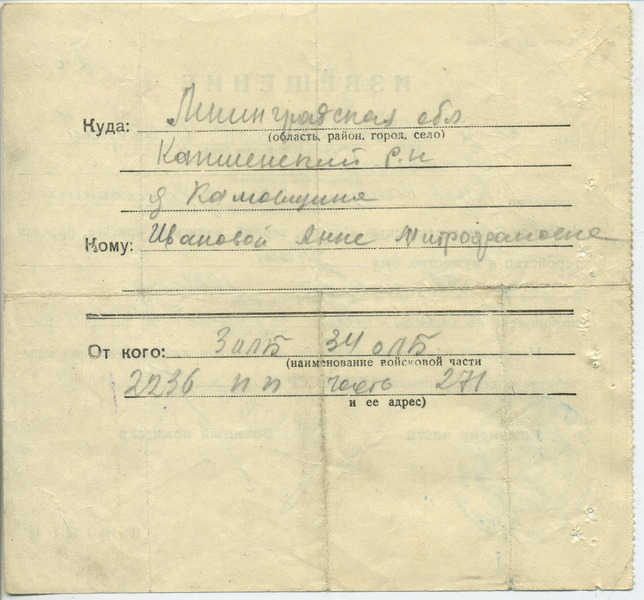 Куда: Ленинградская обл
(область, район, город, село)
Капшенский р-н
д Камовщина
Кому: Ивановой Анне Митрофановне
От кого: 3 олб 34 олб.
(наименование войсковой части
2236 п п часть 271
и ее адрес)
ИЗВЕЩЕНИЕ